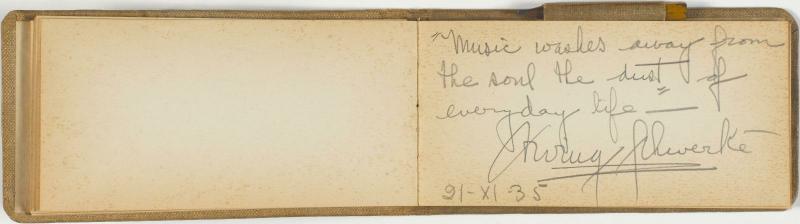 "Music washes away from
the soul the dust of
everyday life" —
Irving Schwerké
21-XI-35